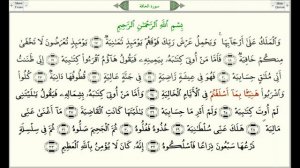 سورة الحاقة
بِسْمِ اللَّهِ الرَّحْمَٰنِ الرَّحِيمِ
وَالْمَلَكُ عَلَىٰ أَرْجَائِهَا ۚ وَيَحْمِلُ عَرْشَ رَبِّكَ فَوْقَهُمْ يَوْمَئِذٍ ثَمَانِيَةٌ يَوْمَئِذٍ تُعْرَضُونَ لَا تَخْفَىٰ
مِنكُمْ خَافِيَةٌ فَأَمَّا مَنْ أُوتِيَ كِتَابَهُ بِيَمِينِهِ فَيَقُولُ هَاؤُمُ اقْرَءُوا كِتَابِيَهْ إِنِّي ظَنَنتُ
أَنِّي مُلَاقٍ حِسَابِيَهْ فَهُوَ فِي عِيشَةٍ رَّاضِيَةٍ فِي جَنَّةٍ عَالِيَةٍ قُطُوفُهَا دَانِيَةٌ كُلُوا
وَاشْرَبُوا هَنِيئًا بِمَا أَسْلَفْتُمْ فِي الْأَيَّامِ الْخَالِيَةِ وَأَمَّا مَنْ أُوتِيَ كِتَابَهُ بِشِمَالِهِ فَيَقُولُ يَا لَيْتَنِي
لَمْ أُوتَ كِتَابِيَهْ وَلَمْ أَدْرِ مَا حِسَابِيَهْ يَا لَيْتَهَا كَانَتِ الْقَاضِيَةَ مَا أَغْنَىٰ عَنِّي
مَالِيَهْ هَلَكَ عَنِّي سُلْطَانِيَهْ خُذُوهُ فَغُلُّوهُ ثُمَّ الْجَحِيمَ صَلُّوهُ ثُمَّ فِي سِلْسِلَةٍ
ذَرْعُهَا سَبْعُونَ ذِرَاعًا فَاسْلُكُوهُ إِنَّهُ كَانَ لَا يُؤْمِنُ بِاللَّهِ الْعَظِيمِ